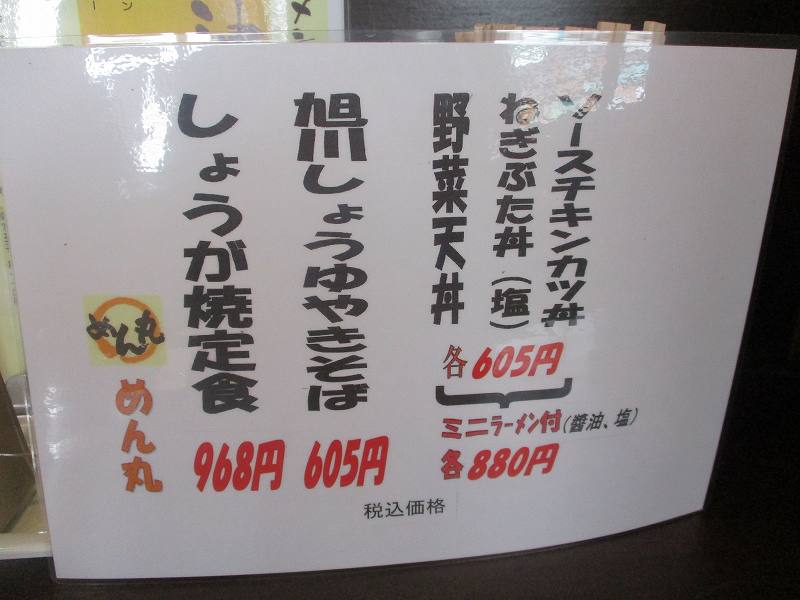 ソースチキンカツ丼
ねぎぶた丼（塩）
野菜天丼
各605円
ミニラーメン付(醤油、塩)
各880円
旭川しょうゆやきそば
605円
しょうが焼定食
968円
めん丸
めん丸
税込価格